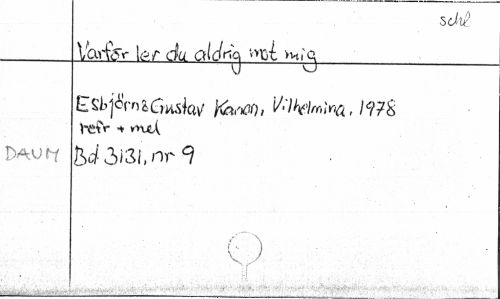 schl
Varför ler du aldrig mot mig
Esbjörn & Gustav Kanon, Vilhelmina, 1978
refr + mel
DAUM Bd 3131, nr 9